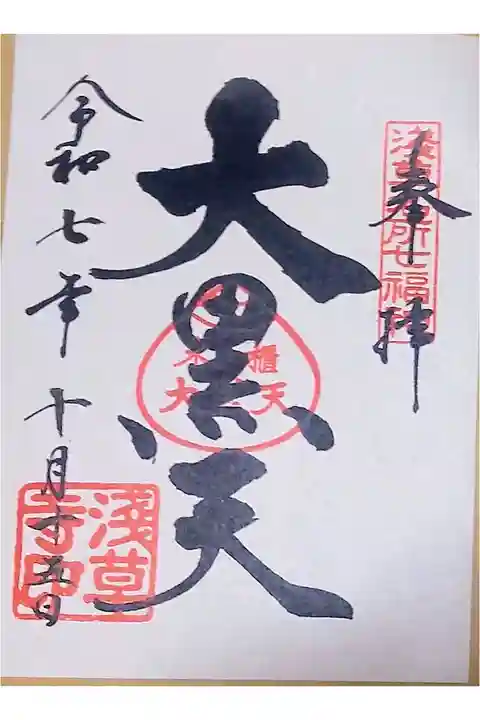 奉拝
浅草名所七福神
大黒天
米櫃
大黒天
令和七年十月十五日
浅草
寺印